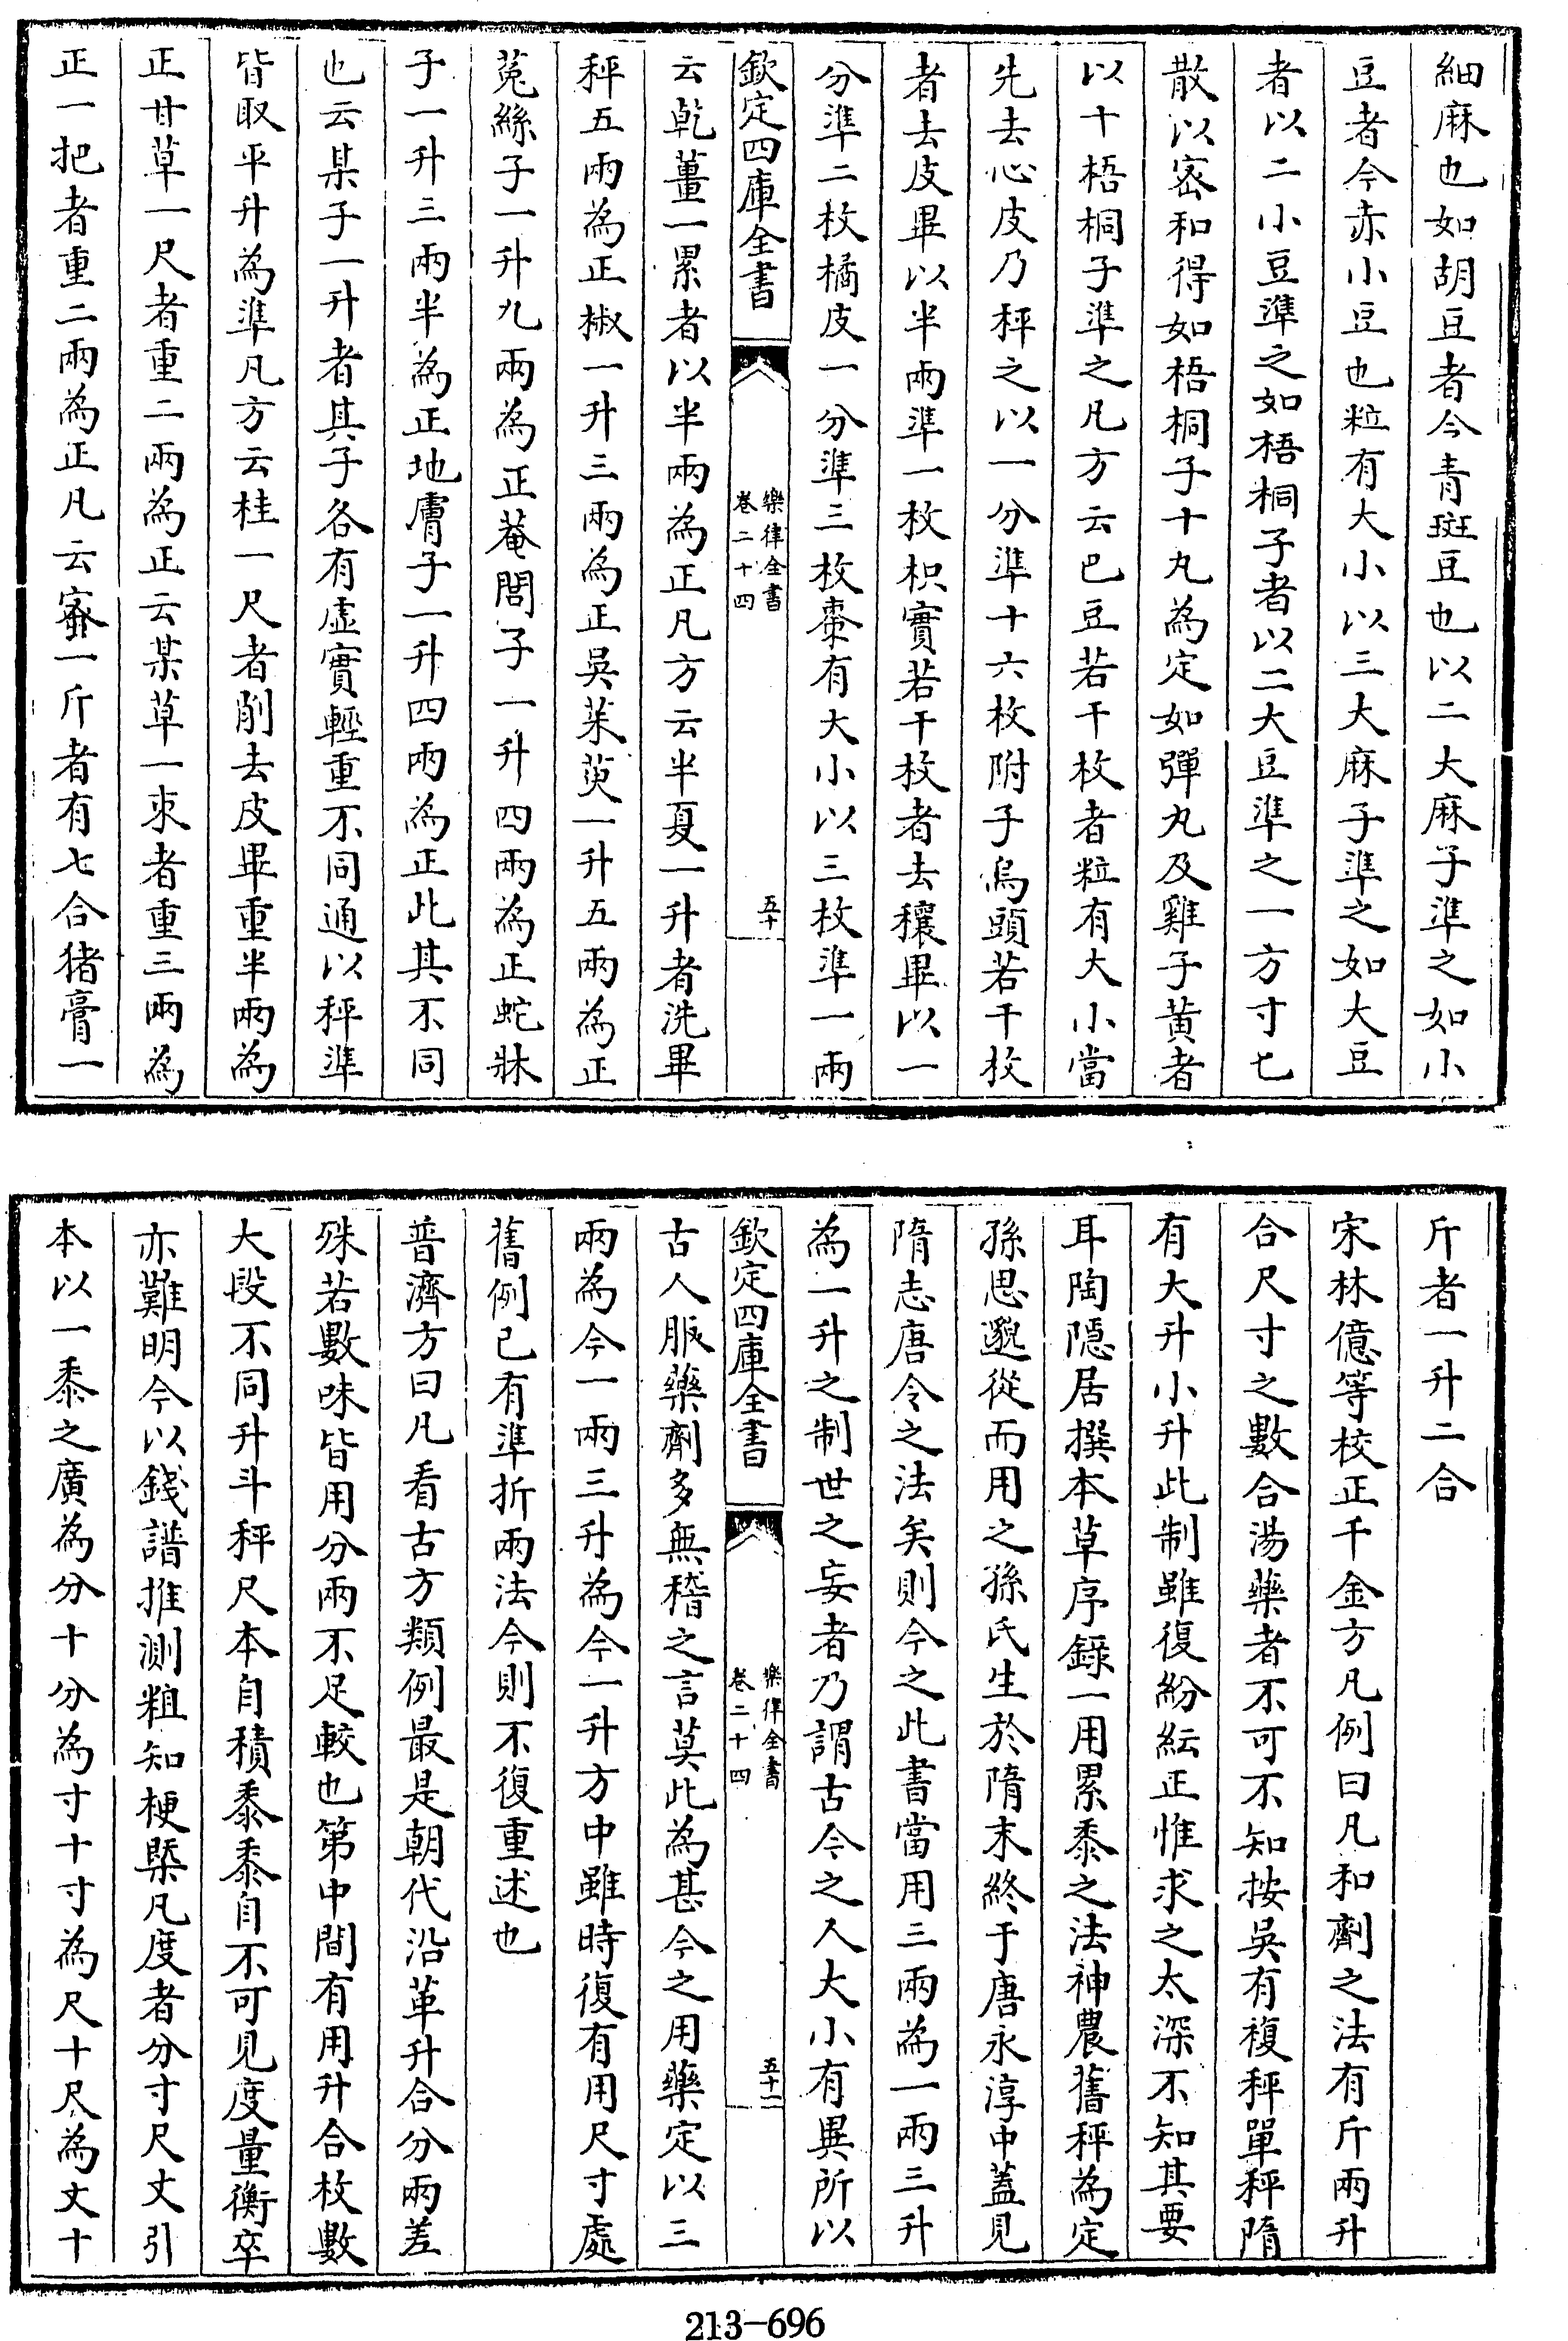 細麻也如胡豆者今青斑豆也以二大麻子準之如小
豆者今赤小豆也粒有大小以三大麻子準之如大豆
者以二小豆準之如梧桐子者以二大豆準之一方寸匕
散以宻和得如梧桐子十丸為定如彈丸及雞子黄者
以十梧桐子準之凡方云巴豆若干枚者粒有大小當
先去心皮乃秤之以一分準十六枚附子烏頭若干枚
者去皮畢以半兩準一枚枳實若干枚者去穰畢以一
分準二枚橘皮一分準三枚棗有大小以三枚準一兩
欽定四庫全書
樂律全書
卷二十四
五十
云乾薑一累者以半兩為正凡方云半夏一升者洗畢
秤五兩為正椒一升三兩為正吳茱萸一升五兩為正
菟絲子一升九兩為正菴䕡子一升四兩為正蛇牀
子一升三兩半為正地膚子一升四兩為正此其不同
也云某子一升者其子各有虛實輕重不同通以秤準
皆取平升為準凡方云桂一尺者削去皮畢重半兩為
正甘草一尺者重二兩為正云某草一束者重三兩為
正一把者重二兩為正凡云蜜一斤者有七合猪膏一
斤者一升二合
宋林億等校正千金方凡例曰凡和劑之法有斤兩升
合尺寸之數合湯藥者不可不知按吳有複秤單秤隋
有大升小升此制雖復紛紜正惟求之太深不知其要
耳陶隱居撰本草序錄一用累黍之法神農舊秤為定
孫思邈從而用之孫氏生於隋末終于唐永淳中蓋見
隋志唐令之法矣則今之此書當用三兩為一兩三升
為一升之制世之妄者乃謂古今之人大小有異所以
欽定四庫全書
樂律全書
卷二十四
五十一
古人服藥劑多無稽之言莫此為甚今之用藥定以三
兩為今一兩三升為今一升方中雖時復有用尺寸處
舊例已有準折兩法今則不復重述也
普濟方曰凡看古方類例最是朝代沿革升合分兩差
殊若數味皆用分兩不足較也第中間有用升合枚數
大段不同升斗秤尺本自積黍黍自不可見度量衡卒
亦難明今以錢譜推測粗知梗槩凡度者分寸尺丈引
本以一黍之廣為分十分為寸十寸為尺十尺為丈十
213-696